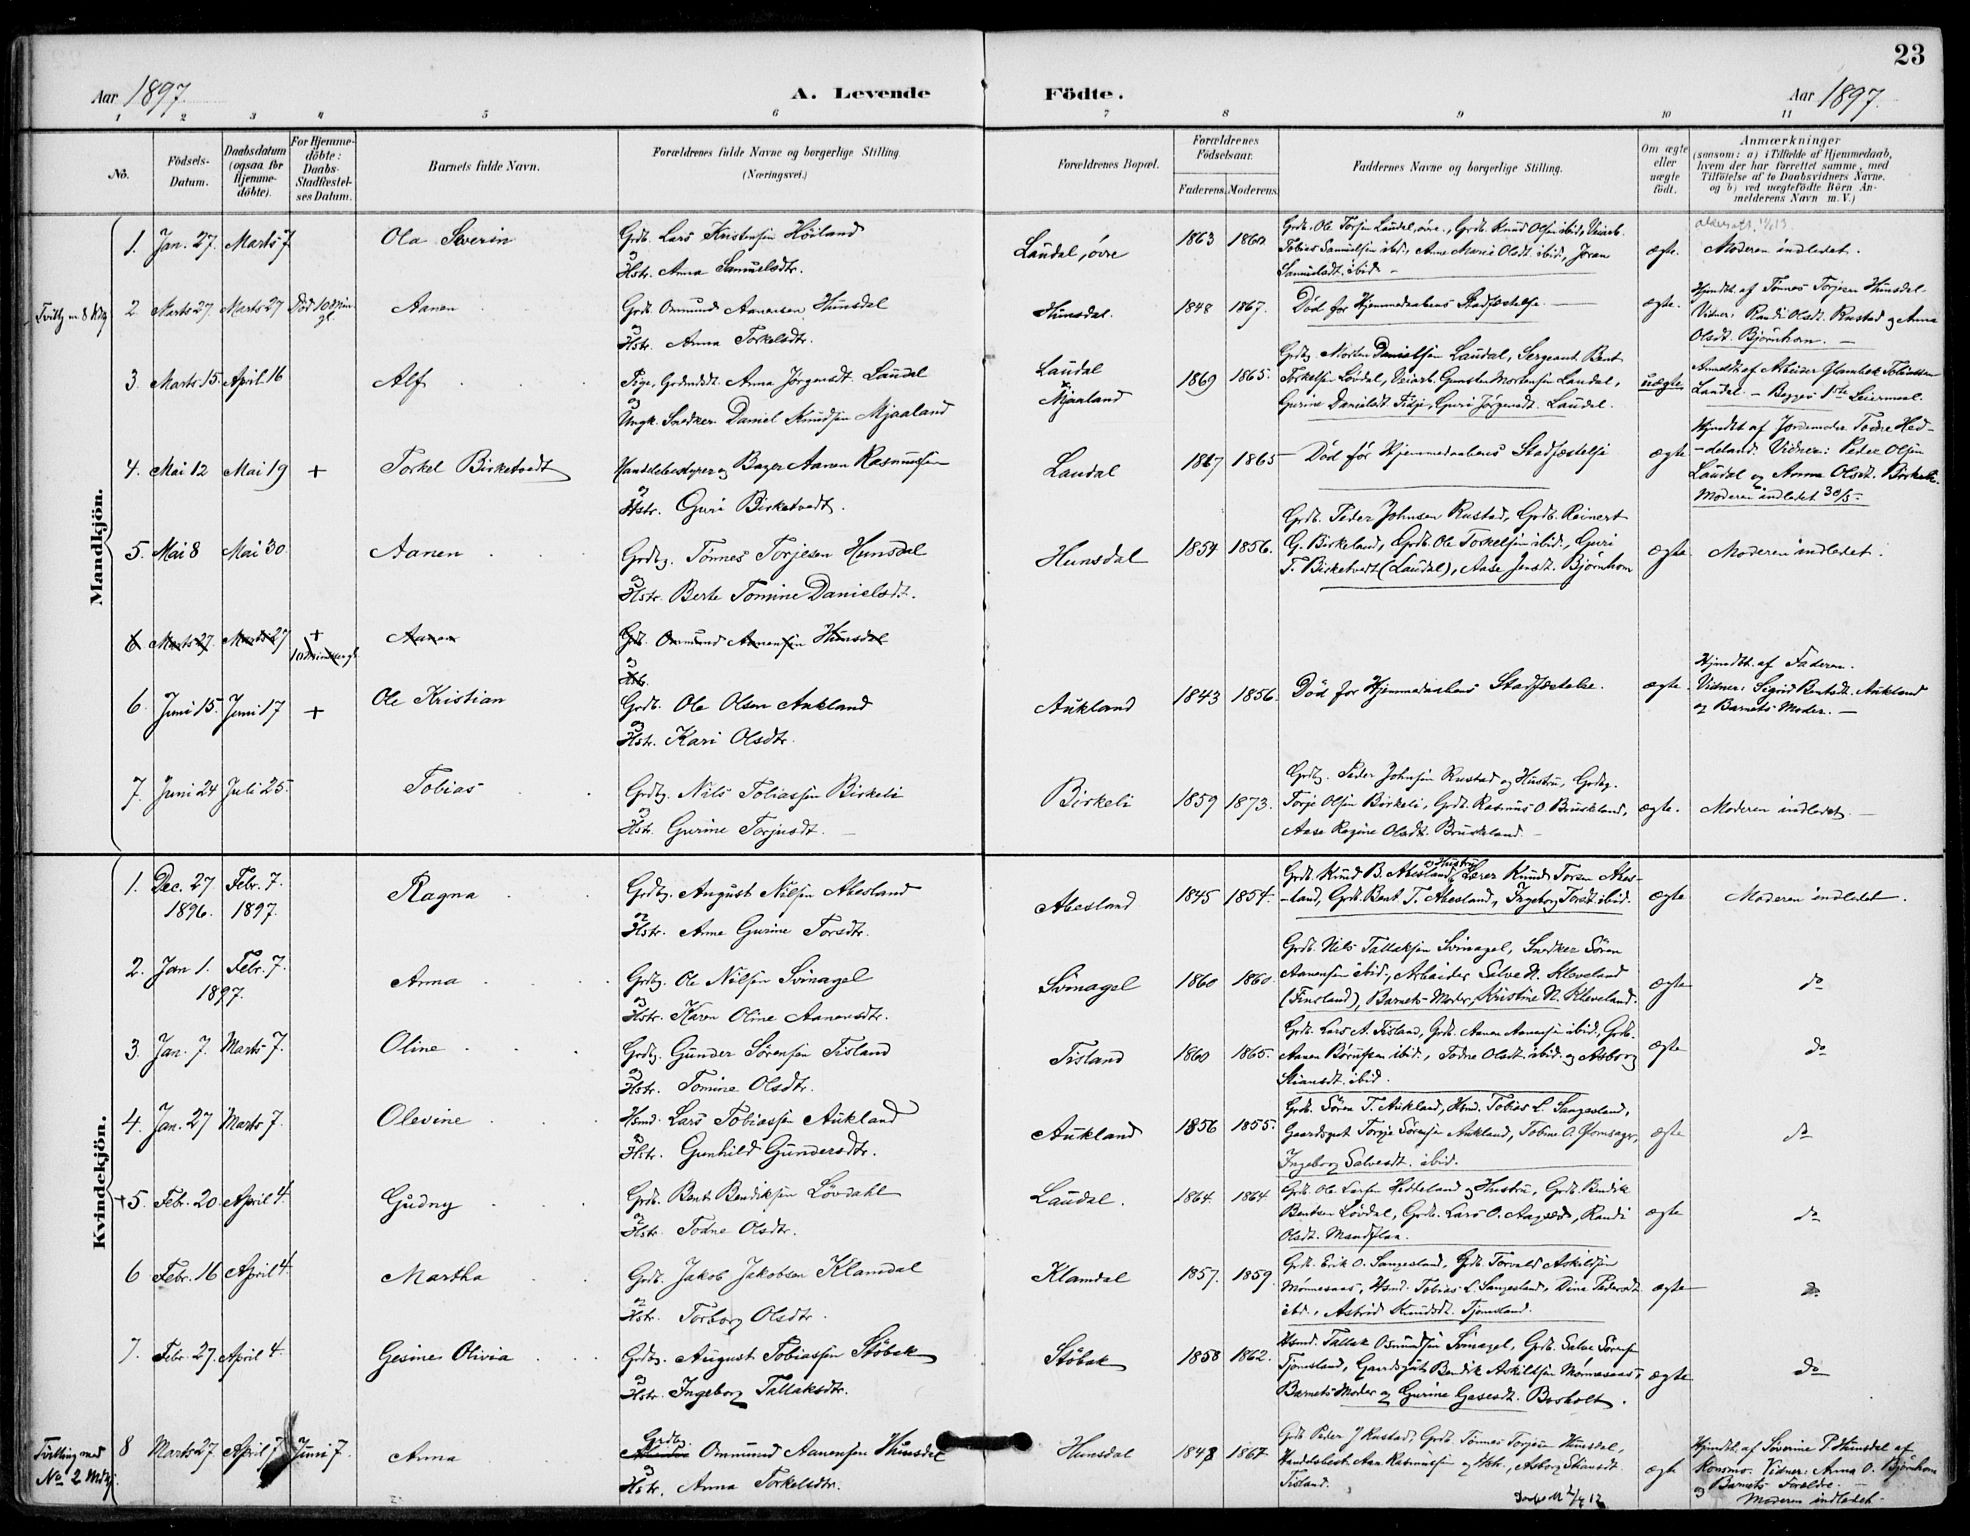 23
Aar 1897. A. Levende Födte. Aar 1897.
1 2 3 4 5 6 7 8 9 10 11
No.
Födsels-Datum.
Daabsdatum (ogsaa for Hjemme-döbte).
For Hjemme-döbte: Daabs-Stadfæstel-ses Datum.
Barnets fulde Navn.
Forældrenes fulde Navne og borgerlige Stilling.
(Næringsvei.)
Forældrenes Bopæl.
Forældrenes Födselsaar.
Faderens. Moderens.
Faddernes Navne og borgerlige Stilling.
Om ægte eller uægte födt.
Anmærkninger
(saasom: a) i Tilfælde af Hjemmedaab,
hvem der har forrettet samme, med
Tilföielse af to Daabsvidners Navne,
og b) ved uægtefödte Börn An-
melderens Navn m. V.)
Mandkjön.
1. Jan. 27. Marts 7 Ola Severin Grdb. Lars Kristensen Höiland
og Hstr. Anna Samuelsdtr.
Laudal, övre 1863 1860
Grdb. Ole Torjsen Laudal, övre, Grdb. Knud Olsen ibid., Veiarb.
Tobias Samuelsen ibid., Anne Marie Olsdt. ibid., Joran
Samuelsdt. ibid.
ægte. Moderen indledet.
Tvilling m. 8 Kvkj.
2 Marts 27. Marts 27 Död 10 Min. gl. Aanen Grdb. Ommund Aanensen Hunsdal
og Hstr. Anna Torkelsdtr.
Hunsdal. 1848 1867. Död for Hjemmedaabens Stadfæstelse. ægte.
Hjmdbt. af Tönnes Torjesen Hunsdal.
Vidner: Randi Olsdt. Rustad og Anna
Olsdt. Björnhom.
3. Marts 15. April 16 Alf Pige, Grdmdt. Anna Jörgensdt. Laudal
og Ungk. Snedker Daniel Knudsen Mjaaland
Laudal
Mjaaland 1869 1865.
Grdbg. Morten Danielsen Laudal, Sergeant Bent
Torkelsen Lövdal, Veiarb. Gunsten Mortensen Laudal,
Gurine Danielsdt. Tidje, Guri Jörgensdt. Laudal.
uægte
Anmeldt af Arbeider Glambek Tobiassen
Laudal. – Begges 1ste Leiermaal.
4. Mai 12 Mai 19 + Torkel Birketvedt Handelsbestyrer og Bager Aanen Rasmussen
og Hstr. Guri Birketvedt.
Laudal 1867 1865 Död för Hjemmedaabens Stadfæstelse ægte
Hjmdbt. af Jordemoder Todne Hed-
-deland. Vidner: Peder Olsen
Laudal og Anna Olsdt. Birkeli.
Moderen indledet 30/5
5. Mai 8 Mai 30. Aanen Grdbg. Tönnes Torjesen Hunsdal
og Hstr. Berte Tomine Danielsdt.
Hunsdal 1854 1856.
Grdb. Peder Johnsen Rustad, Grdb. Reinert
G. Birkeland, Grdb. Ole Torkelsen ibid., Guri
T. Birketvedt (Laudal), Aase Jensdt. Björnhom
ægte Moderen indledet.
6 Marts 27. Marts 27 + 10 Minutter gl. Aanen Grdb. Ommund Aanensen Hunsdal
og Hstr.
6. Juni 15. Juni 17 + Ole Kristian Grdb. Ole Olsen Aukland
og Hstr. Kari Olsdtr.
Aukland 1843 1856. Död for Hjemmedaabens Stadfæstelse. ægte
Hjmdbt. af Faderen.
Vidner: Sigrid Bentsdt. Aukland
og Barnets Moder.
7. Juni 24 Juli 25. Tobias Grdbg. Nils Tobiassen Birkeli
og Hstr. Gurine Torjusdt.
Birkeli 1859 1873.
Grdbg. Peder Johnsen Rustad og Hustru, Grdbg.
Torje Olsen Birkeli, Grdb. Rasmus O. Bruskeland,
Aase Regine Olsdt. Bruskeland.
ægte. Moderen indledet.
Kvindekjön.
1. Dec. 27 1896. Febr. 7. 1897. Ragna Grdbg. August Nilsen Abesland
og Hstr. Anne Gurine Torsdtr.
Abesland 1845 1854.
Grdb. Knud B. Abesland og Hustru, Lærer Knud Torsen Abes-
-land, Grdb. Bent T. Abesland, Ingeborg Torsdt. ibid.
ægte Moderen indledet.
2. Jan 1. 1897. Febr. 7. Anna Grdbg. Ole Nilsen Svinagel
og Hstr. Karen Oline Aanensdtr.
Svinagel 1860 1860.
Grdb. Nils Tallaksen Svinagel, Snedker Sören
Aanensen ibid., Arbeider Salve N. Kleveland
(Finsland), Barnets Moder, Kristine N. Kleveland.
ægte do
3. Jan. 7. Marts 7. Oline Grdbg. Gunder Sörensen Tisland
og Hstr. Tomine Olsdtr.
Tisland 1860 1865.
Grdb. Lars A. Tisland, Grdb. Aanen Aanensen ibid., Grdb.
Aanen Börufsen ibid., Todne Olsdt. ibid. og Asborg
Stiansdt. ibid.
ægte do
4. Jan. 27 Marts 7. Olevine Hsmd. Lars Tobiassen Aukland
og Hstr. Gunhild Gundersdtr.
Aukland 1856 1855.
Grdb. Sören T. Aukland, Hsmd. Tobias L. Sangesland,
Gaardsgut Torje Sörensen Aukland, Tobine O.
Ingeborg Salvesdt. ibid.
ægte do
+5. Febr. 20. April 4. Gudny Grdb. Bent Bendiksen Lövdahl
og Hstr. Todne Olsdtr.
Laudal. 1864. 1864
Grdb. Ole Larsen Heddeland og Hustru, Grdb. Bendik
Bentsen Lövdal, Grdb. Lars O. Aagsæd, Randi
Olsdt. Mandflaa.
ægte do
6 Febr. 16 April 4. Martha Grdb. Jakob Jakobsen Klamdal
og Hstr. Torborg Olsdtr.
Klamdal 1857. 1859.
Grdb. Erik O. Sangesland, Grdb. Torvald Askildsen
Mönnesaas, Hsmd. Tobias L. Sangesland, Dina Pedersdt.
ibid., Astrid Knudsdt. Tjomsland.
ægte do
7 Febr. 27. April 4. Gesine Olivia Grdbg. August Tobiassen Stöbak
og Hstr. Ingeborg Tallaksdtr.
Stöbak 1858 1862.
Hsmd. Tallak Osmundsen Svinagel, Grdb. Salve Sörensen
Tjomsland, Gaardsgut Bendik Askildsen Mönnesaas,
Barnets Moder og Gurine Gasesdt. Bosholt.
ægte do
Tvilling med
No. 2 Mdkj.
8 Marts 27. April 7 Juni 7. Anna Grdbg. Ommund Aanensen Hunsdal
og Hstr. Anna Torkelsdtr.
Hunsdal 1848 1867
Grdb. Peder J. Rustad, Grdb. Tönnes Torjesen Hunsdal,
Handelsbest. Aan. Rasmussen og Hstr., Asborg Stiansdt.
Tisland.
ægte
Hjmdbt. af Severine P. Hunsdal af
Konsmo. Vidner: Anna O. Björnhom
og Barnets Forældre.
Moderen indledet.